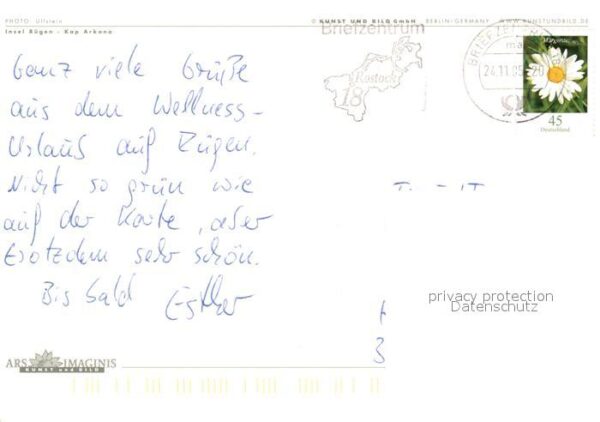 PHOTO: Ullstein
© KUNST UND BILD GmbH BERLIN-GERMANY WWW.KUNSTUNDBILD.DE
Insel Rügen - Kap Arkona
Briefzentrum
Rostock
18
BRIEFZENTRUM
24.11.05-20
Margerite
45
Deutschland
Ganz viele Grüße
aus dem Wellness-
Urlaub auf Rügen.
Nicht so grün wie
auf der Karte, aber
trotzdem sehr schön.
Bis bald Esther
privacy protection
Datenschutz
ARS IMAGINIS
KUNST und BILD